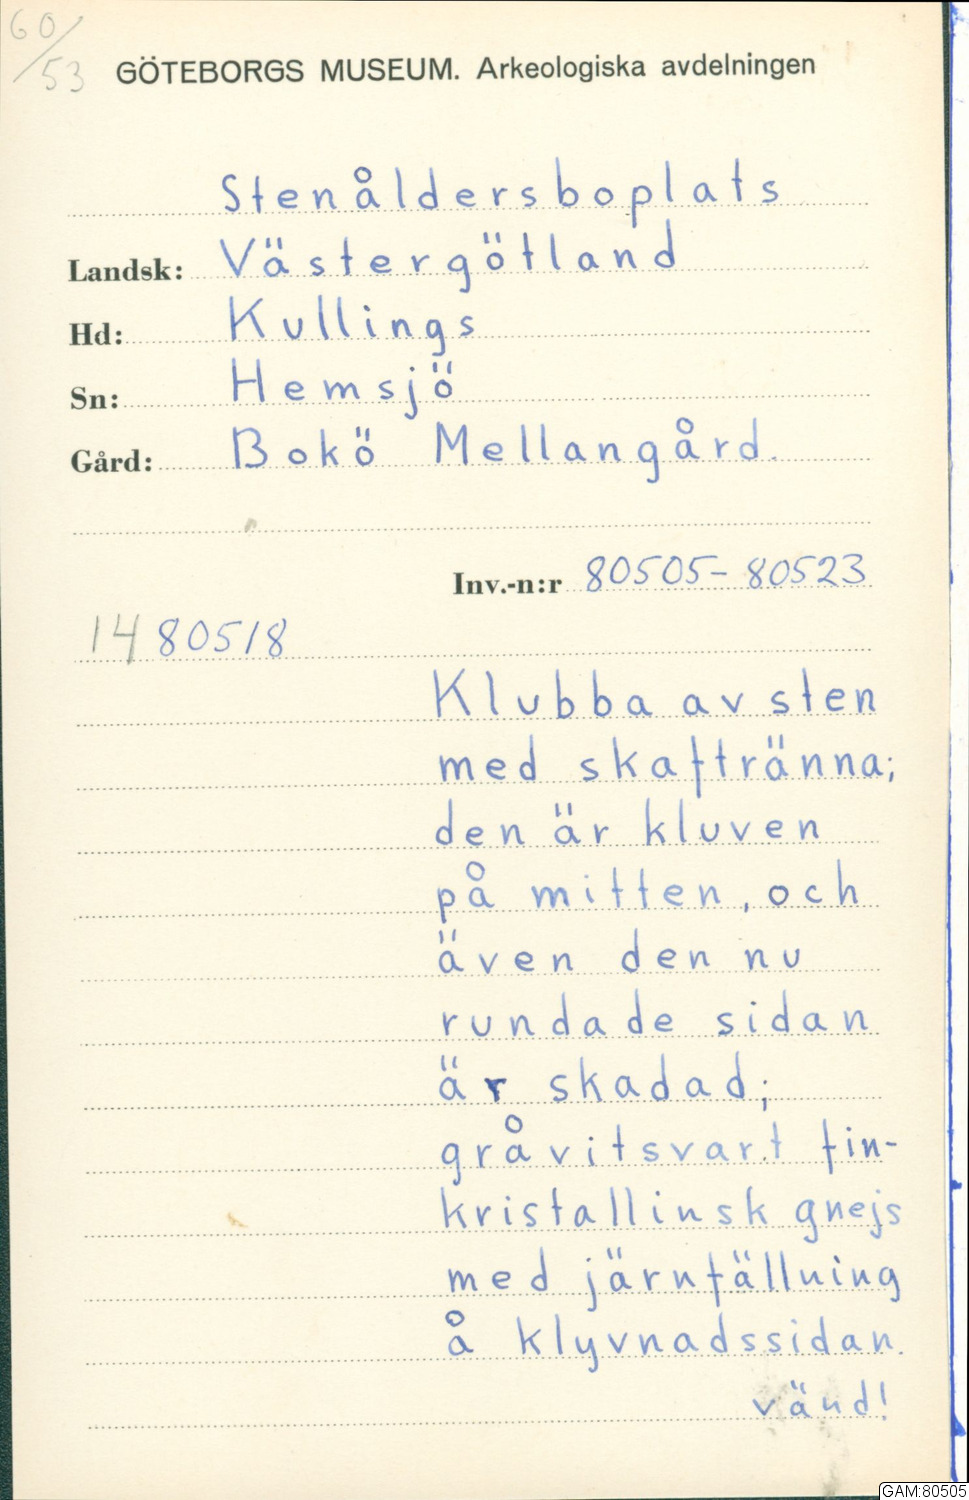 60/53
GÖTEBORGS MUSEUM. Arkeologiska avdelningen
Stenåldersboplats
Landsk: Västergötland
Hd: Kullings
Sn: Hemsjö
Gård: Bokö Mellangård.
Inv.-n:r 80505-80523
14 80518
Klubba av sten
med skaftränna;
den är kluven
på mitten, och
även den nu
rundade sidan
är skadad;
gråvitsvart fin-
kristallinsk gnejs
med järnfällning
å klyvnadssidan.
vänd!
GAM:80505